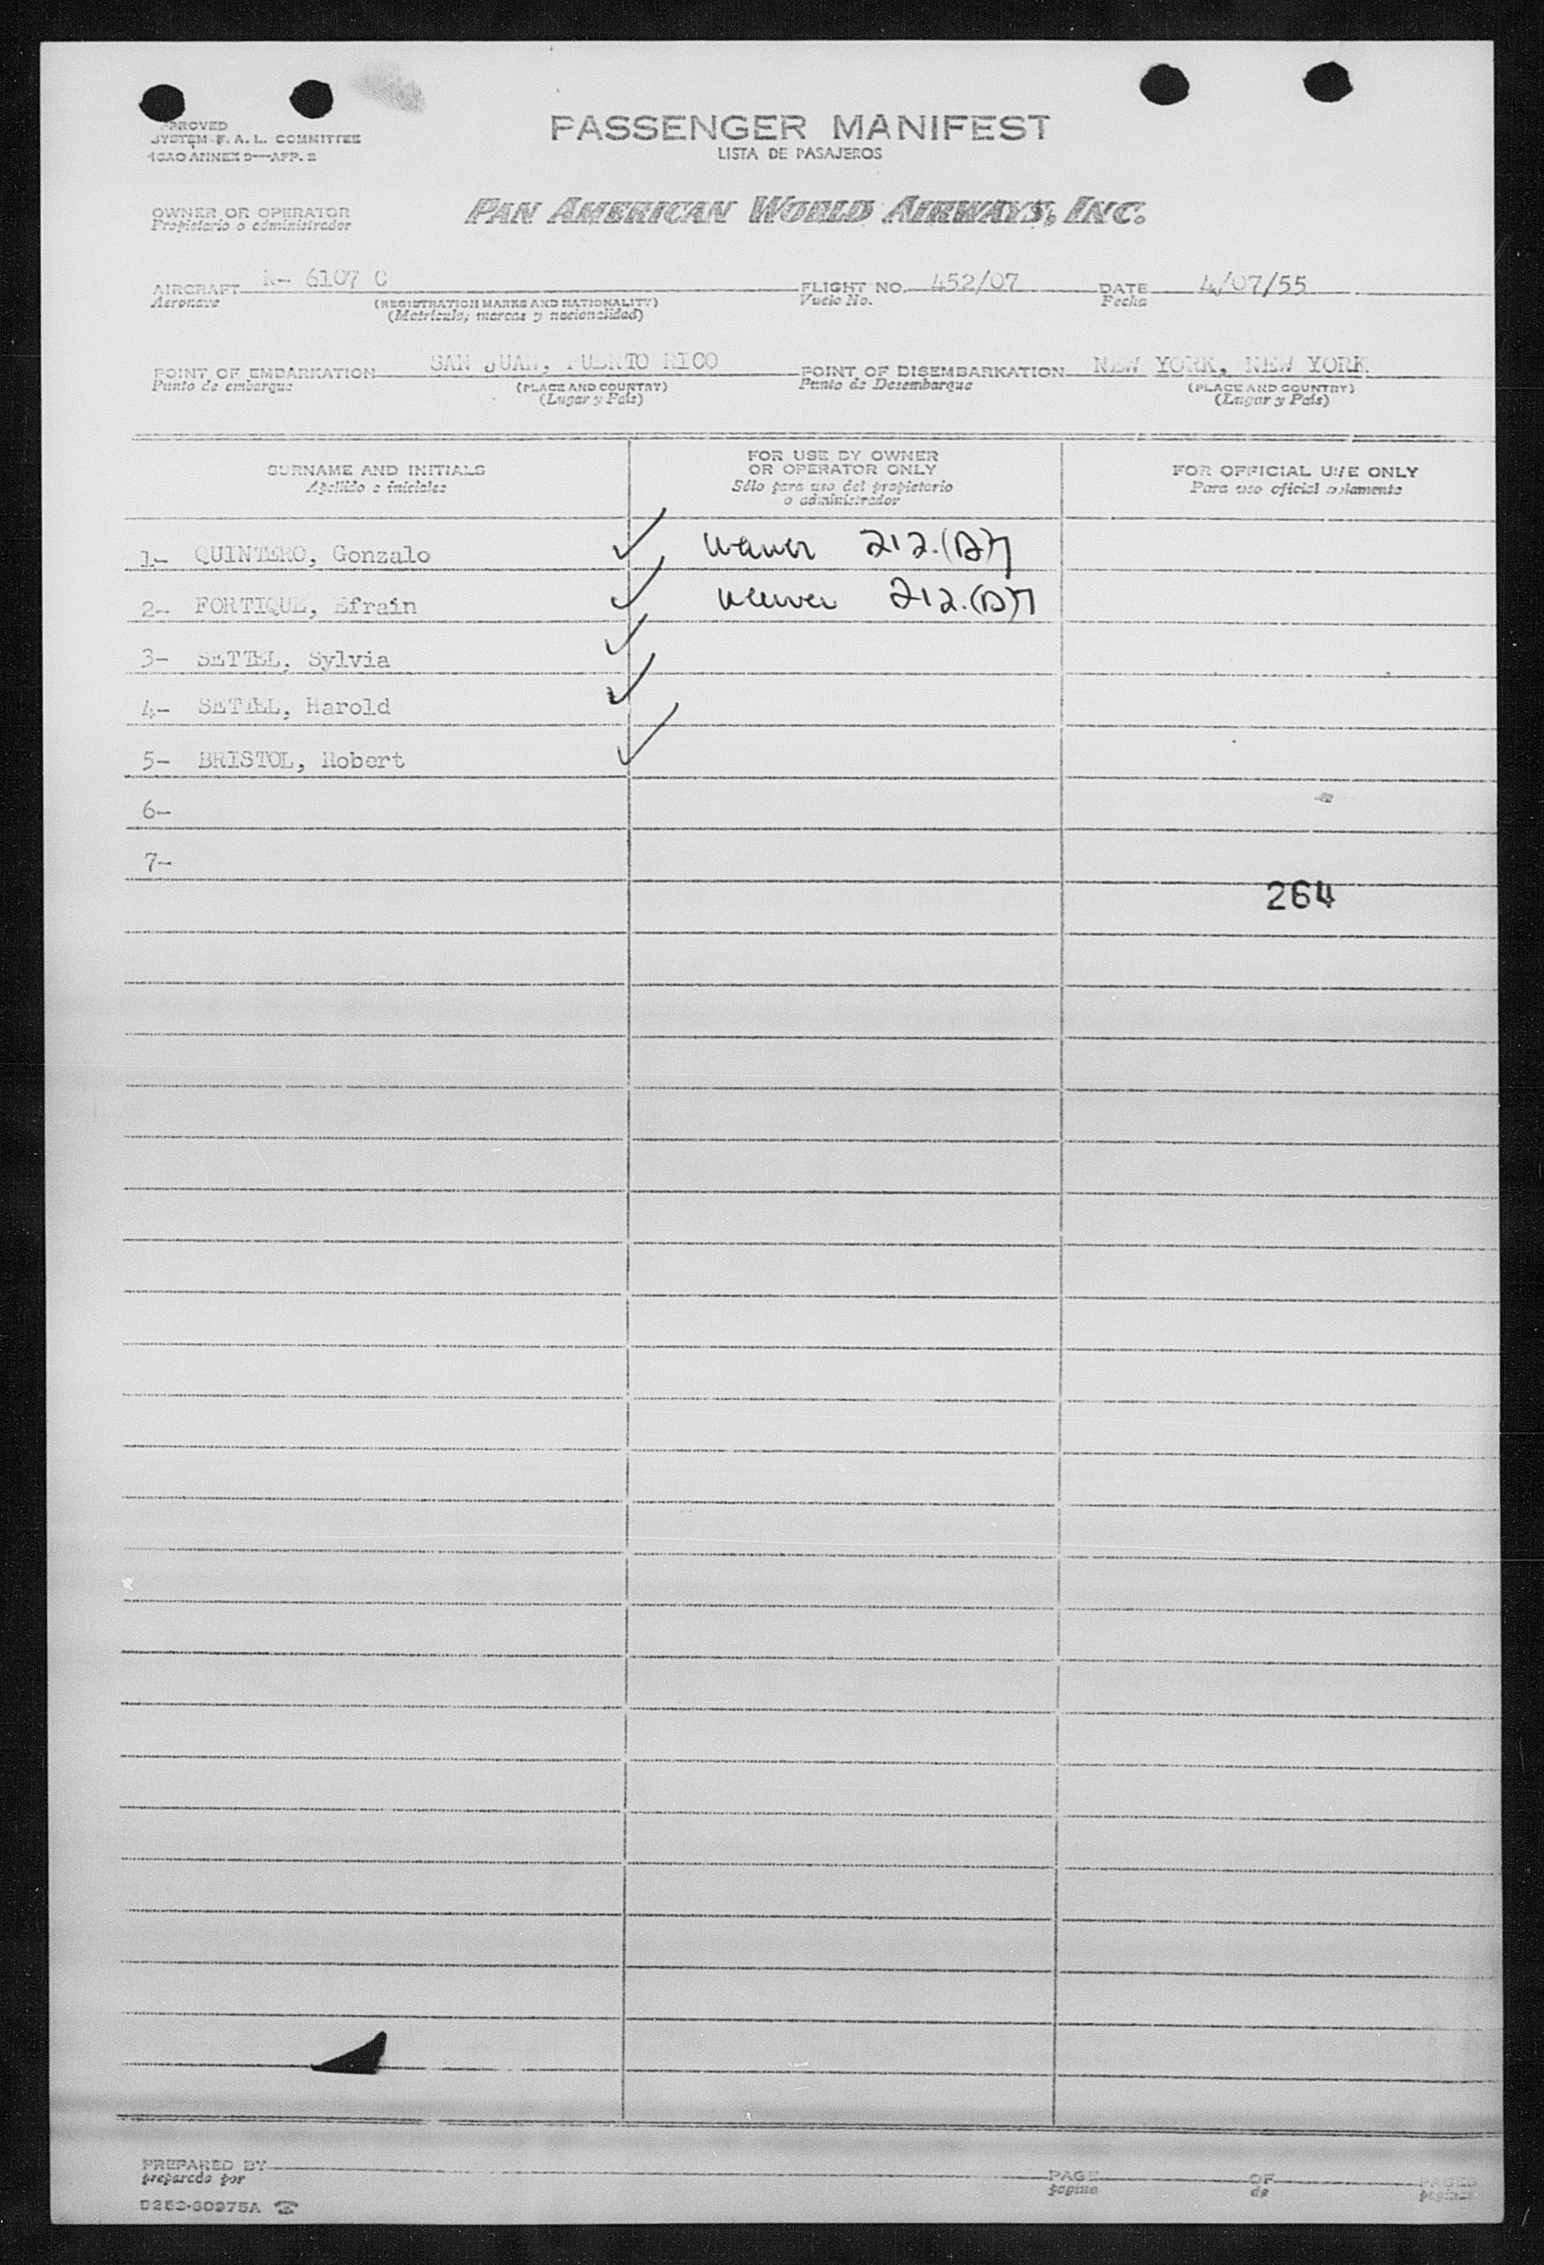 PROVED
SYSTEM F. A. L. COMMITTEE
ICAO ANNEX 9—APP. 2
PASSENGER MANIFEST
LISTA DE PASAJEROS
OWNER OR OPERATOR
Propietario o administrador
PAN AMERICAN WORLD AIRWAYS, INC.
AIRCRAFT N- 6107 C FLIGHT NO. 452/07 DATE 4/07/55
Aeronave (REGISTRATION MARKS AND NATIONALITY) Vuelo No. Fecha
(Matrícula; marcas y nacionalidad)
POINT OF EMBARKATION SAN JUAN, PUERTO RICO POINT OF DISEMBARKATION NEW YORK, NEW YORK
Punto de embarque (PLACE AND COUNTRY) Punto de Desembarque (PLACE AND COUNTRY)
(Lugar y País) (Lugar y País)
SURNAME AND INITIALS
Apellido e iniciales
FOR USE BY OWNER
OR OPERATOR ONLY
Sólo para uso del propietario
o administrador
FOR OFFICIAL USE ONLY
Para uso oficial solamente
1- QUINTERO, Gonzalo ✓ waiver 212.(D)7
2- FORTIQUE, Efrain ✓ waiver 212.(D)7
3- SETTEL, Sylvia ✓
4- SETTEL, Harold ✓
5- BRISTOL, Robert ✓
6-
7-
264
PREPARED BY PAGE OF PAGES
preparado por página de páginas